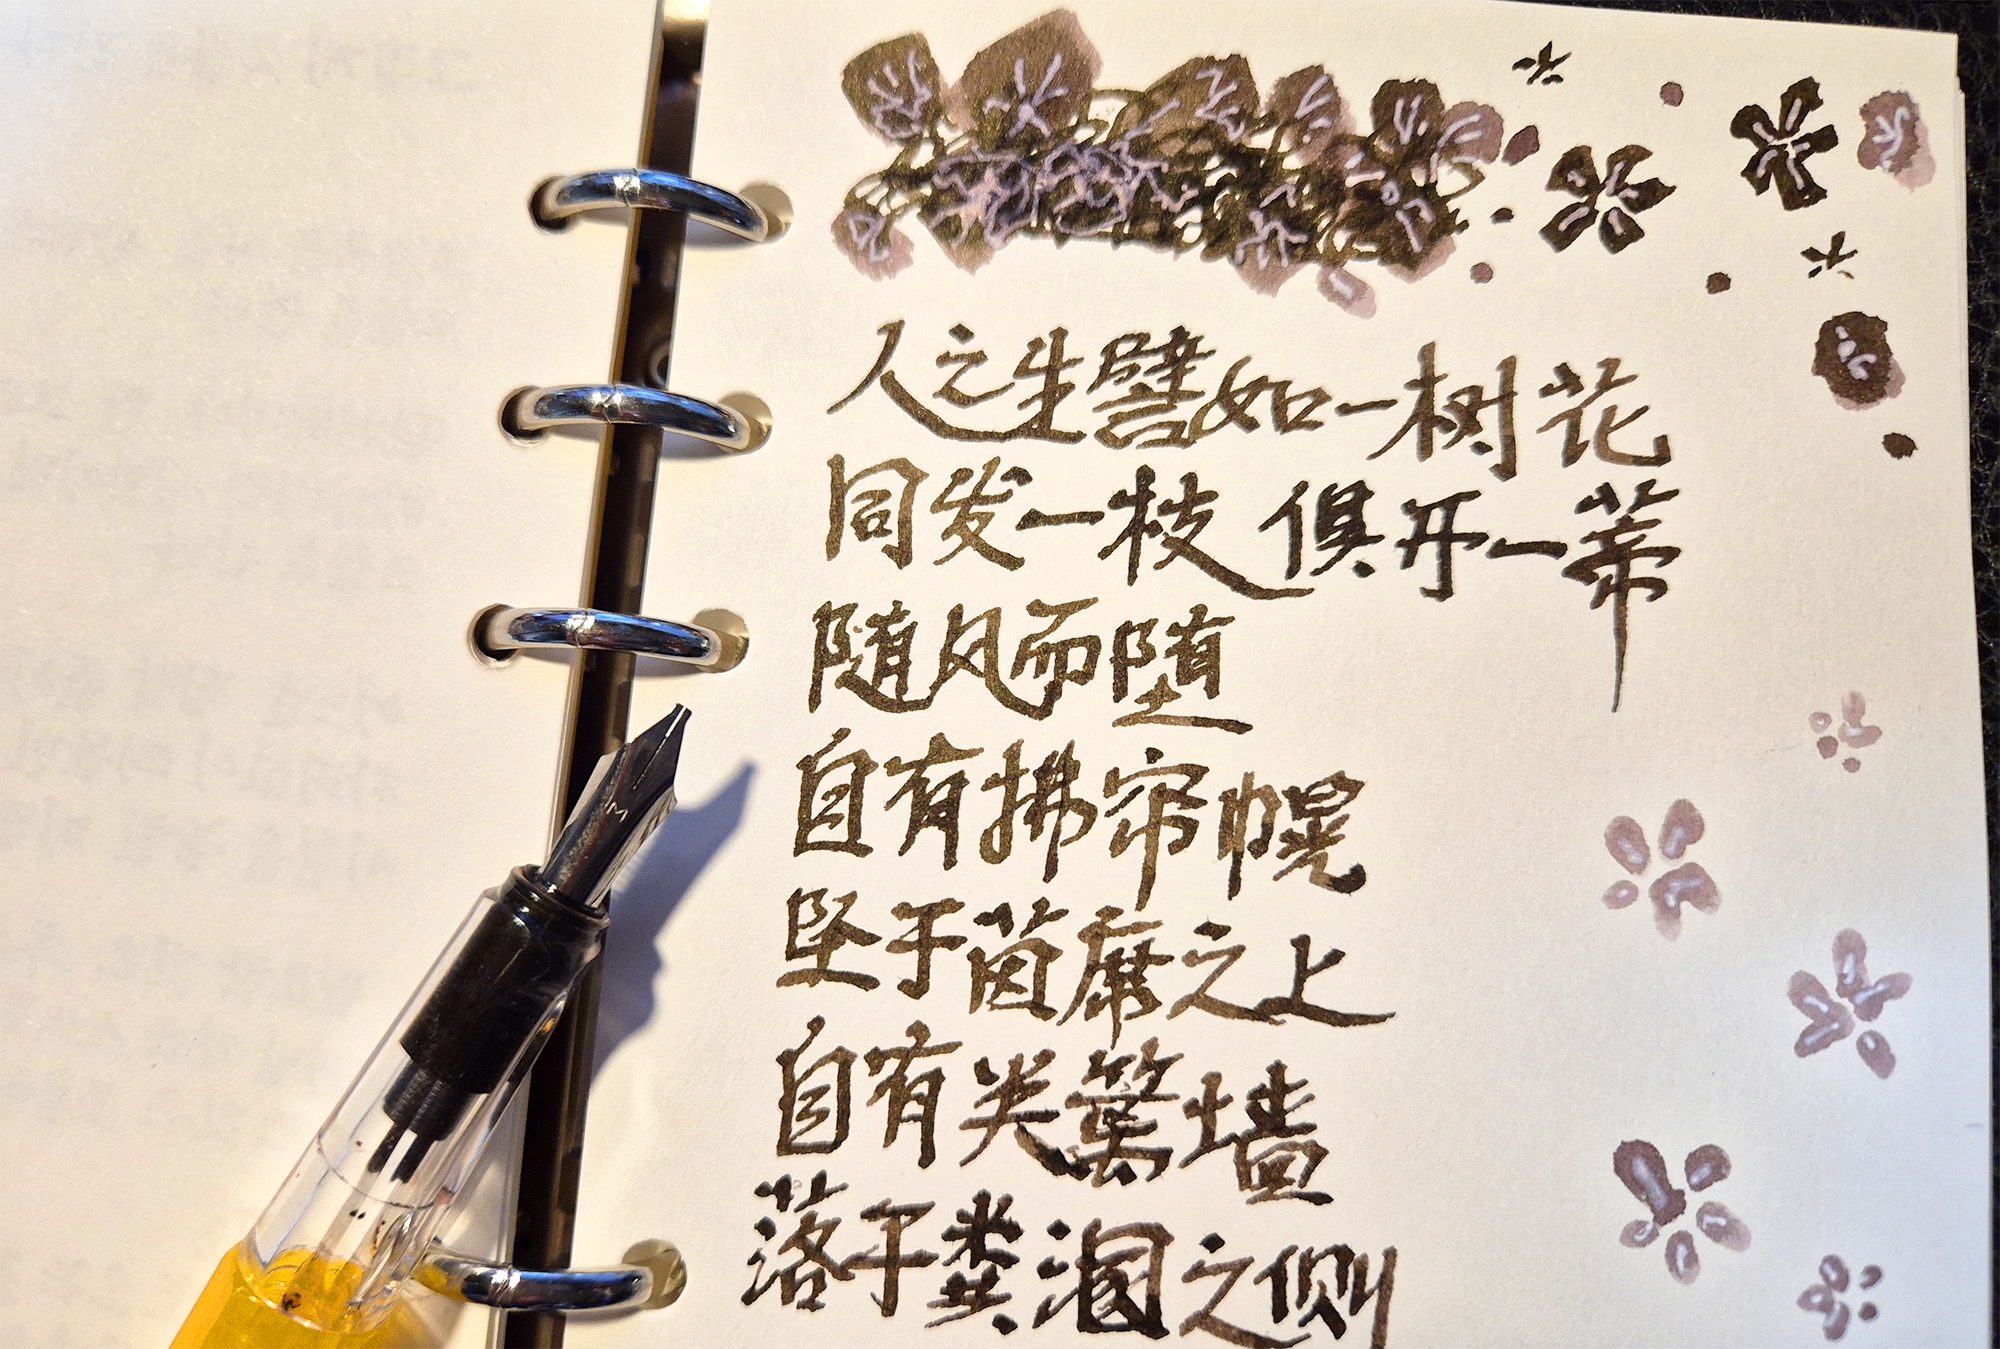 人之生譬如一树花
同发一枝 俱开一蒂
随风而堕
自有拂帘幌
坠于茵席之上
自有关篱墙
落于粪溷之侧
M